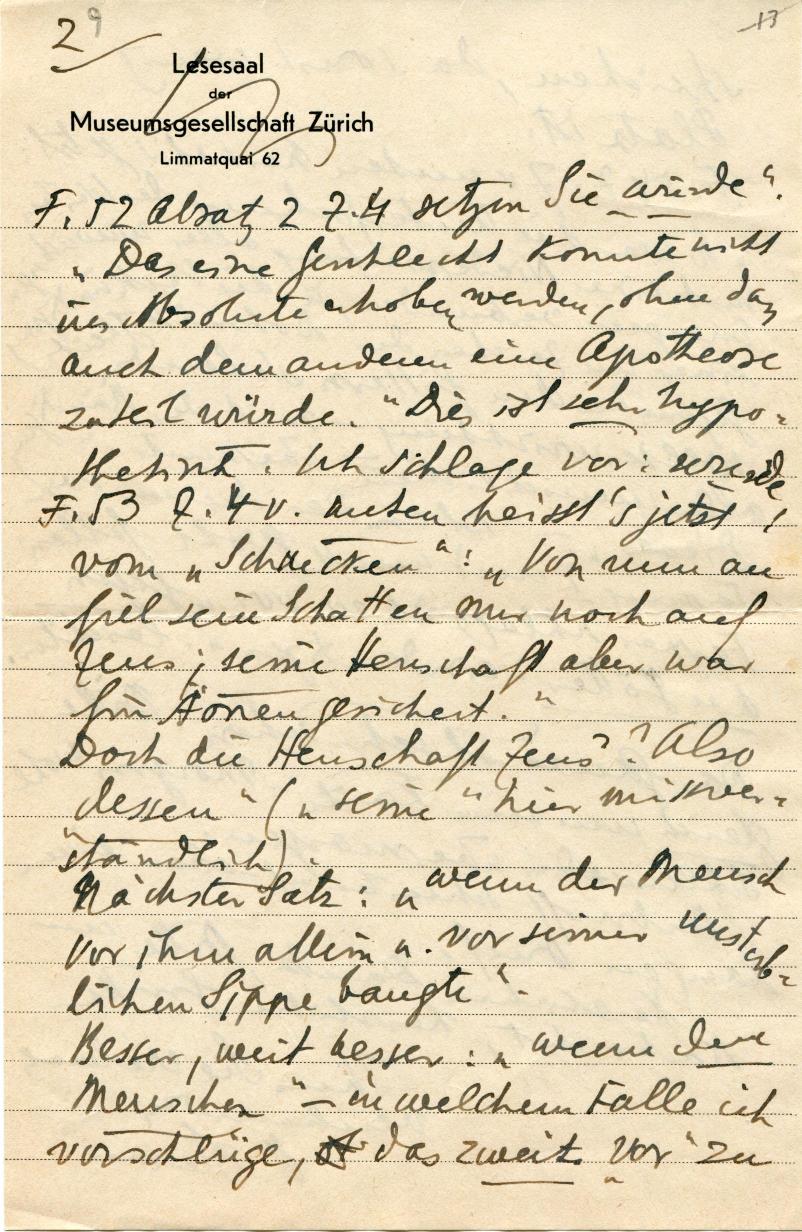 2 9
13
Lesesaal
der
Museumsgesellschaft Zürich
Limmatquai 62
F. 52 Absatz 2 Z. 4 setzen Sie würde".
„Das eine Geschlecht konnte nicht
ins Absolute erhoben werden, ohne dass
auch dem anderen eine Apotheose
zuteil würde." Dies ist sehr hypo-
thetisch. Ich schlage vor: wurde
F. 53 Z. 4 v. unten heisst's jetzt
vom „Schrecken": „Von nun an
fiel sein Schatten nur noch auf
Zeus; seine Herrschaft aber war
für Äonen gesichert."
Doch die Herrschaft Zeus'? Also
„dessen" („seine" hier missver-
ständlich).
Nächster Satz: „wenn der Mensch
vor ihm allein u. vor seiner unsterb-
lichen Sippe bangte".
Besser, weit besser: „wenn dem
Menschen" – in welchem Falle ich
vorschlüge, das zweite „vor" zu